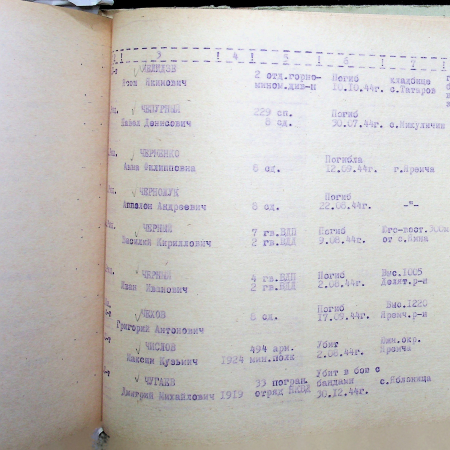 3 ! 4 ! 5 ! 6 ! 7 !
2 отд.горно- Погиб кладбище
Яков Акимович мином.див-н 10.10.44г. с.Татаров
229 сп. Погиб
Павел Денисович 8 сд. 30.07.44г. с.Микуличин
ЧЕРНЕНКО Погибла
Анна Филипповна 8 сд. 12.09.44г. г.Яремча
Погиб
Андреевич 8 сд. 22.08.44г. -"-
ЧЕРНЫЙ 7 гв.ВДП Погиб Юго-вост.
Василий Кириллович 2 гв.ВДД 9.08.44г. от с.
ЧЕРНЫЙ 4 гв.ВДП Погиб Выс.1005
Иван Иванович 2 гв.ВДД 2.08.44г. Делят.р-н
ЧЕХОВ Погиб Выс.1220
Григорий Антонович 8 сд. 17.09.44г. Яремч.р-н
ЧИСЛОВ 494 арм. Убит
Максим Кузьмич 1924 мин.полк 2.08.44г. Яремча
ЧУГАЕВ 33 погран. Убит в бою с
бандами с.Яблоница
Дмитрий Михайлович 1919 отряд НКВД 30.12.44г.